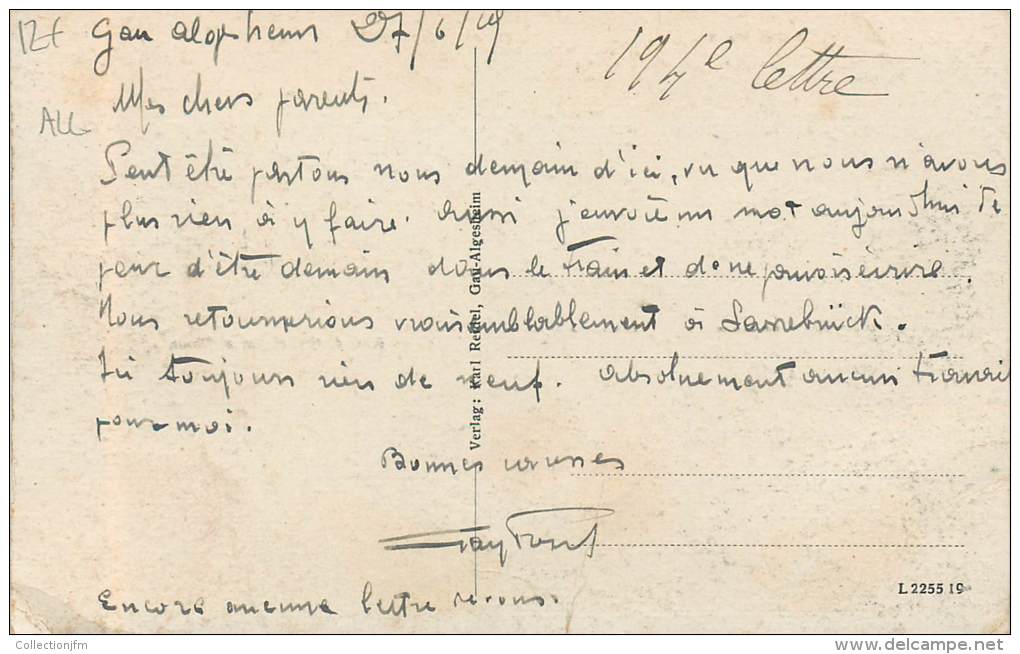 12+
Gau algesheim 27/6/19
194e lettre
Mes chers parents.
ALL
Peut être partons nous demain d'ici, vu que nous n'avons
plus rien à y faire. aussi j'envoie un mot aujourd'hui de
peur d'être demain dans le train et de ne pouvoir écrire.
Nous retournerions vraisemblablement à Sarrebrück.
Ici toujours rien de neuf. absolument aucun travail
pour moi.
Bonnes caresses
Encore aucune lettre reçue.
Verlag: Karl Reidel, Gau-Algesheim
L 2255 19
Collectionjfm
delcampe.net